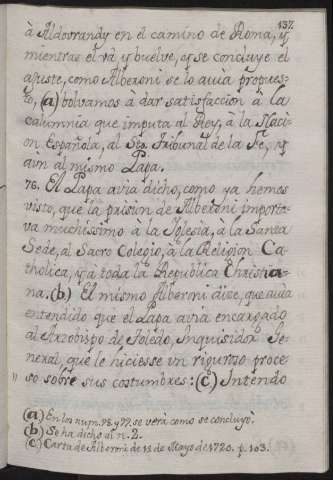 137.
à Aldovrandy en el camino de Roma, y
mientras el và y buelve, y se concluye el
ajuste, como Alberoni se lo avia propues-
to, (a) bolvamos à dar satisfaccion à la
calumnia que imputa al Rey, à la Naci-
on Española, al Sto. Tribunal de la Fe, y
aun al mismo Papa.
76. El Papa avia dicho, como ya hemos
visto, que la prision de Alberoni importa-
va muchissimo à la Iglesia, à la Santa
Sede, al Sacro Colegio, à la Religion Ca-
tholica, y à toda la Republica Christia-
na. (b) El mismo Alberoni dize, que avia
entendido que el Papa avia encargado
al Arzobispo de Toledo, Inquisidor Ge-
neral, que le hiciesse un riguroso proce-
so sobre sus costumbres: (c) Intendo
(a) En los num. 78. y 79. se verà como se concluyò.
(b) Se ha dicho al n. 2.
(c) Carta de Alberoni de 11 de Mayo de 1720. p. 103.